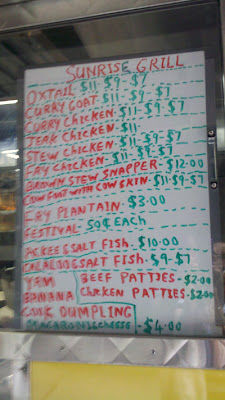 SUNRISE GRILL
OXTAIL-$11-$9-$7
CURRY GOAT-$11-$9-$7
CURRY CHICKEN-$11-$9-$7
JERK CHICKEN-$11-
STEW CHICKEN-$11-$9-$7
FRY CHICKEN-$11-$9-$7
BROWN STEW SNAPPER-$12.00
COW FOOT WITH COW SKIN-$11-$9-$7
FRY PLANTAIN-$3.00
FESTIVAL-50¢ EACH
ACKEE & SALT FISH-$10.00
CALALOO & SALT FISH-$9-$7
YAM BEEF PATTIES-$2.00
BANANA CHICKEN PATTIES-$2.00
COOK DUMPLING
MACARONI & CHEESE-$4.00